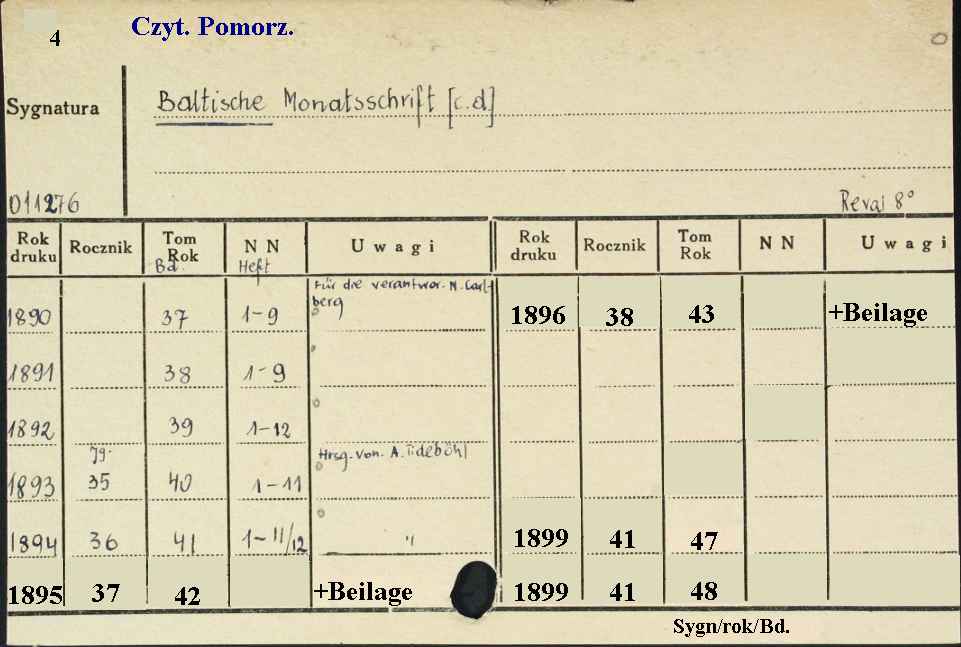 4 Czyt. Pomorz.
Sygnatura Baltische Monatsschrift [c.d]
011276 Reval 8°
Rok druku Rocznik Tom Rok Bd. N N Heft Uwagi Rok druku Rocznik Tom Rok N N Uwagi
Für die verantwor. N. Carl-
berg
1890 37 1-9 1896 38 43 +Beilage
1891 38 1-9
1892 39 1-12
Jg. Hrsg. von. A. Tideböhl
1893 35 40 1-11
1894 36 41 1-11/12 " 1899 41 47
1895 37 42 +Beilage 1899 41 48
Sygn/rok/Bd.